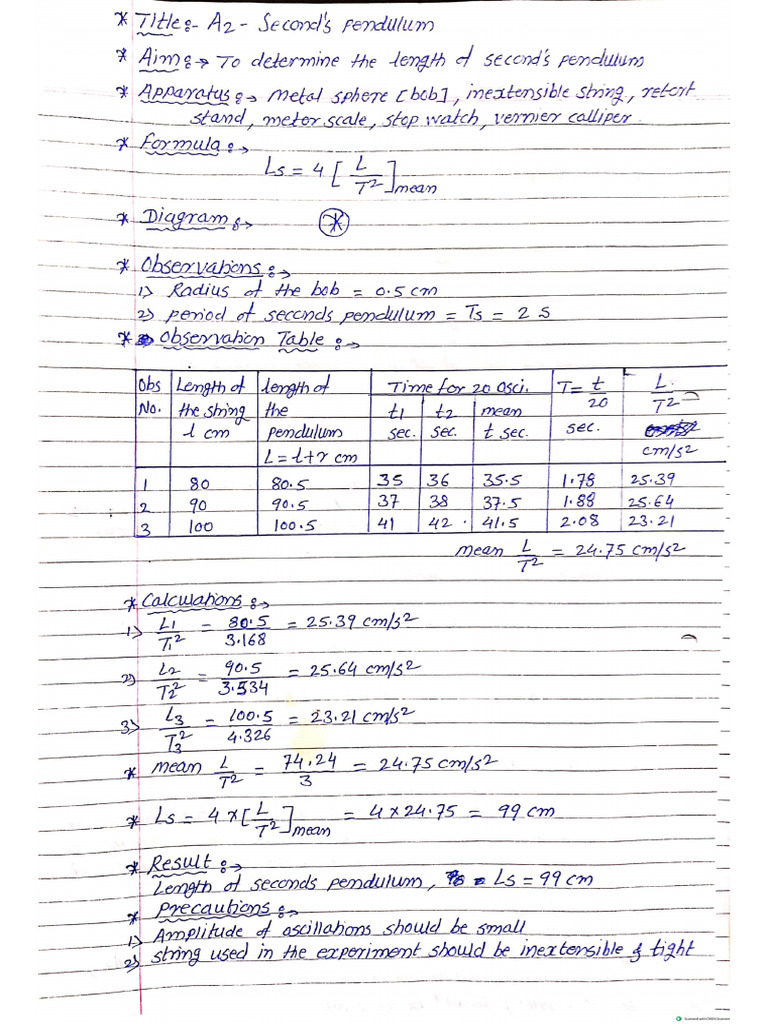 * Title:- A2 - Second's pendulum
* Aim:→ To determine the length of second's pendulum
* Apparatus:→ Metal sphere [bob], inextensible string, retort
stand, meter scale, stop watch, vernier calliper.
* Formula:→
Ls = 4 [L/T²]mean
* Diagram:→ *
* Observations:→
1) Radius of the bob = 0.5 cm
2) period of seconds pendulum = Ts = 2 S
* Observation Table:→
Obs No. | Length of the string l cm | length of the pendulum L = l+r cm | Time for 20 Osci. t1 sec. | t2 sec. | mean t sec. | T = t/20 sec. | L/T² cm/s²
1 | 80 | 80.5 | 35 | 36 | 35.5 | 1.78 | 25.39
2 | 90 | 90.5 | 37 | 38 | 37.5 | 1.88 | 25.64
3 | 100 | 100.5 | 41 | 42 | 41.5 | 2.08 | 23.21
mean L/T² = 24.75 cm/s²
* Calculations:→
1) L1/T1² = 80.5/3.168 = 25.39 cm/s²
2) L2/T2² = 90.5/3.534 = 25.64 cm/s²
3) L3/T3² = 100.5/4.326 = 23.21 cm/s²
* mean L/T² = 74.24/3 = 24.75 cm/s²
* Ls = 4 × [L/T²]mean = 4 × 24.75 = 99 cm
* Result:→
Length of seconds pendulum, Ls = 99 cm
* Precautions:→
1) Amplitude of oscillations should be small
2) string used in the experiment should be inextensible & tight
Scanned with OKEN Scanner